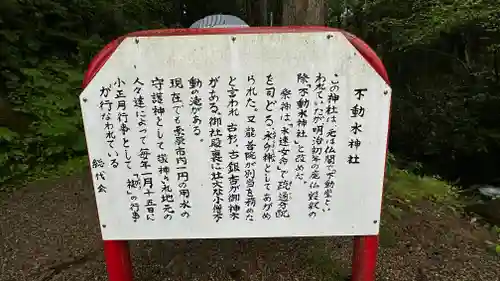 不動水神社
この神社は、元は仏閣で「不動堂」とい
われていたが明治初年の廃仏毀釈の
際「不動水神社」と改めた。
祭神は「水速女命」で疏通分配
を司どる、水の神としてあがめ
られた。又龍善院が別当を務めた
と言われ古杉、古銀杏が御神木
がある。御社殿裏に社大な小僧不
動の滝がある。
現在でも 市内一円の用水の
守護神として敬神の礼地元の
人々達によって毎年一月十五日に
小正月行事として「 」の行事
が行なわれている
総代会